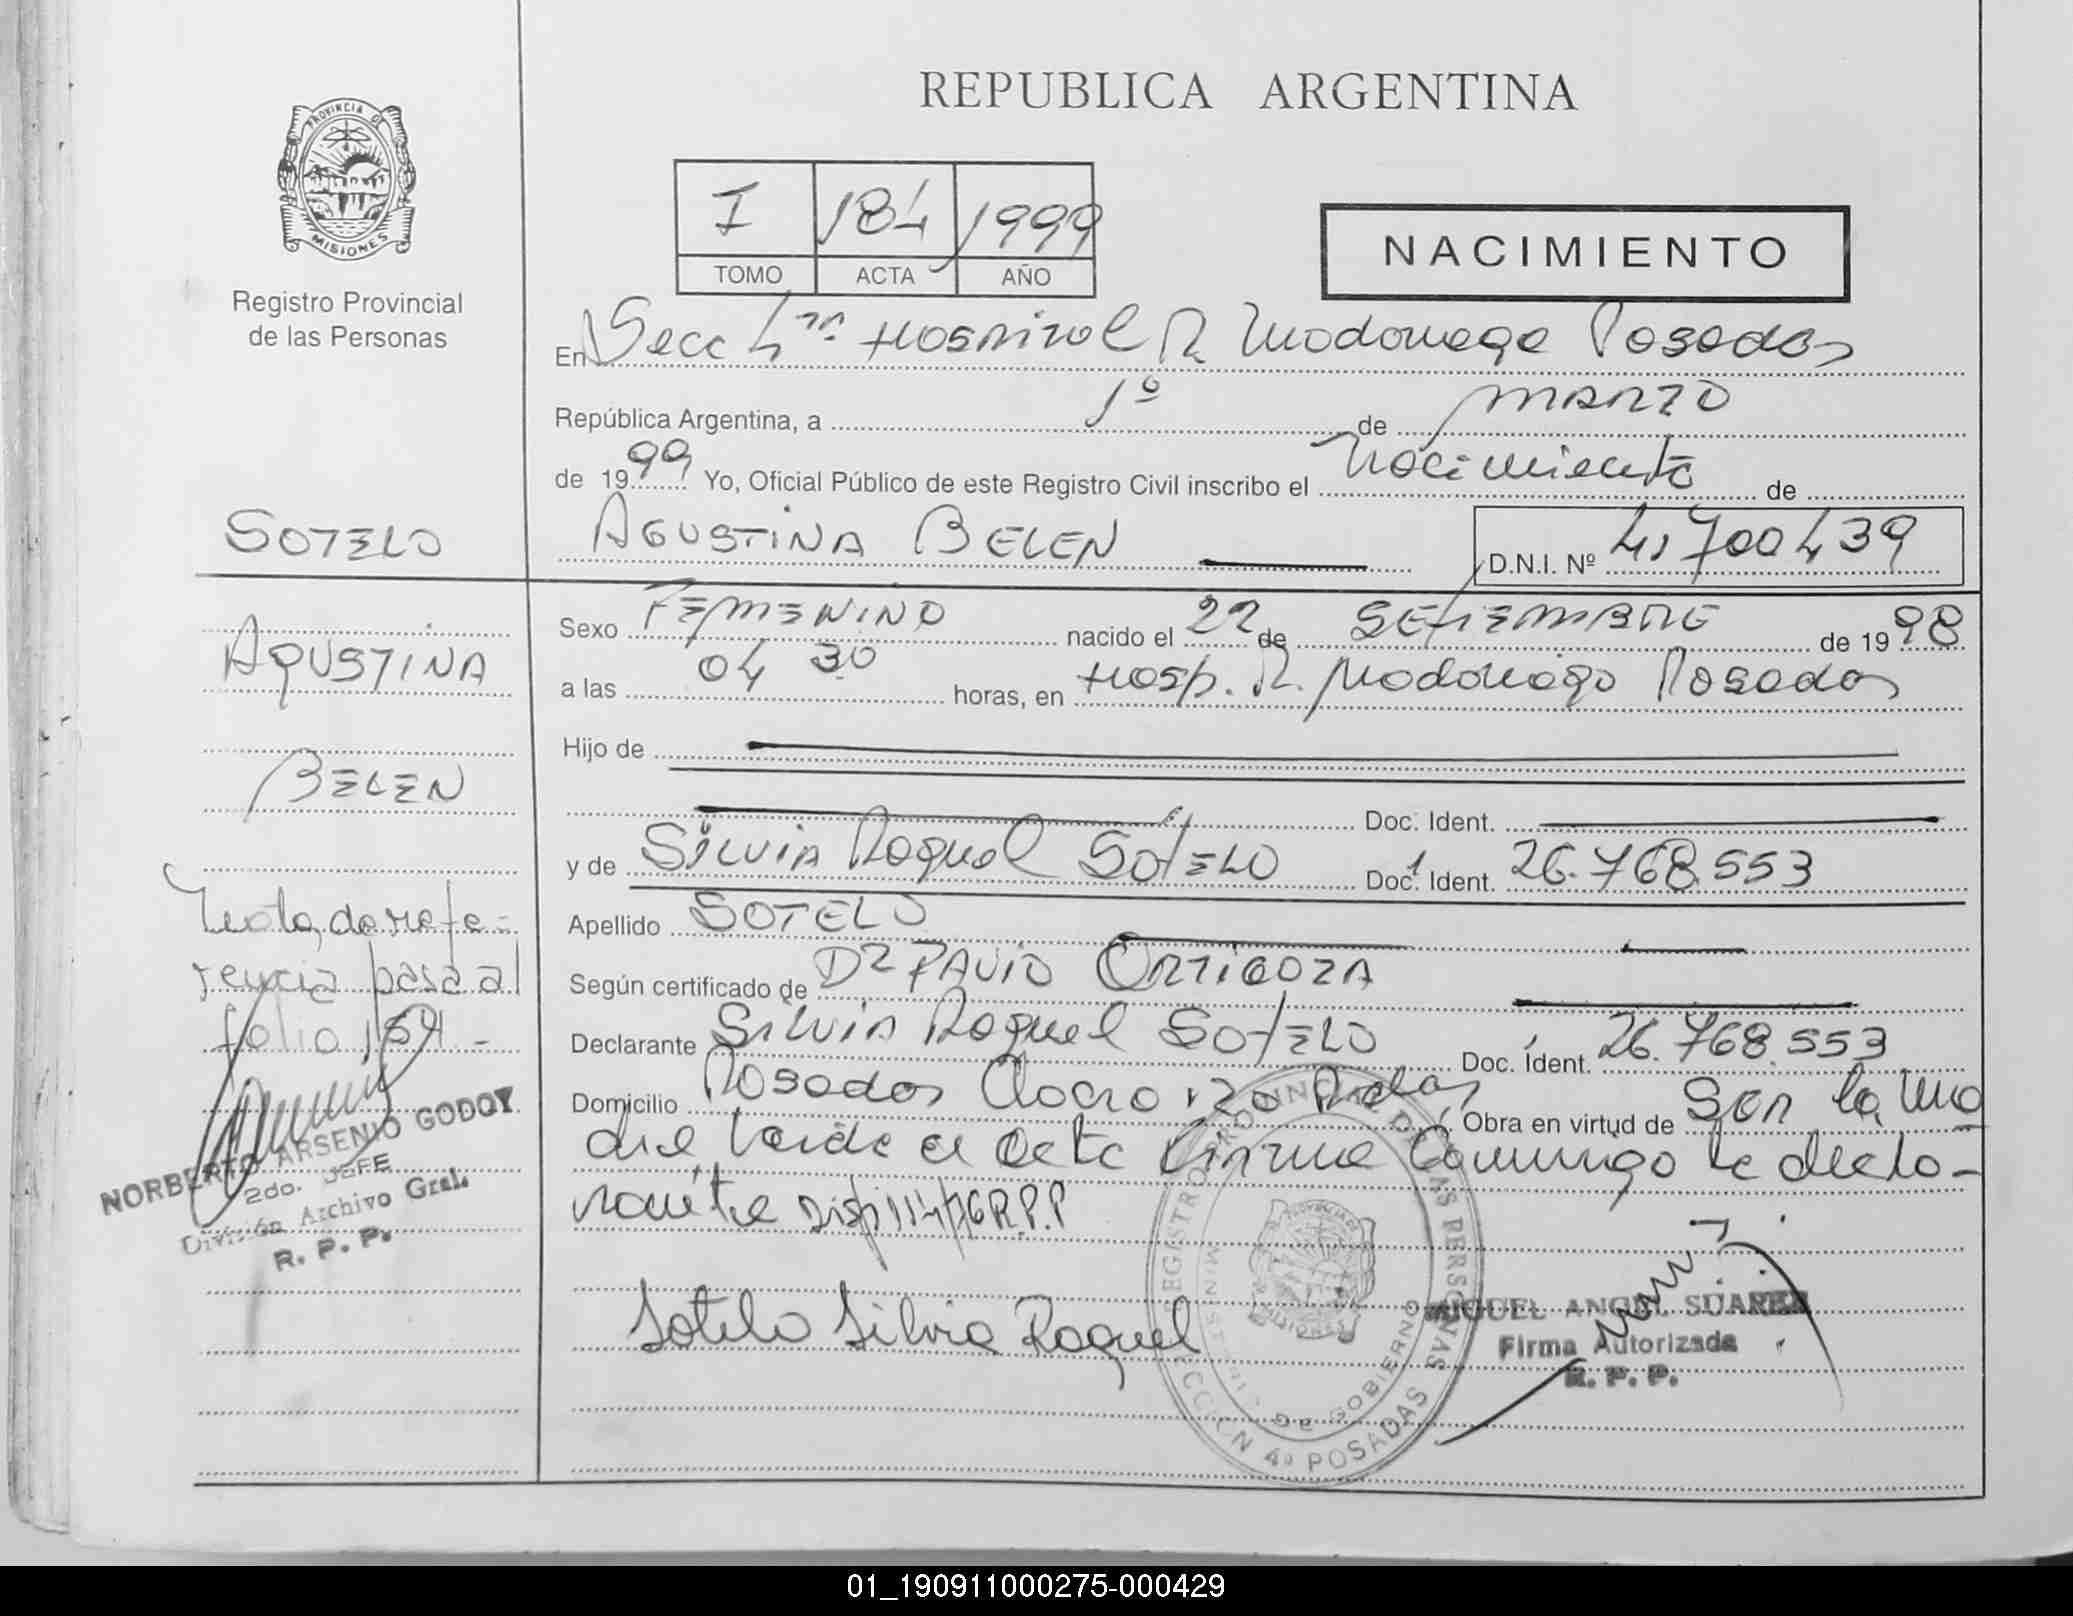 REPUBLICA ARGENTINA
PROVINCIA DE
MISIONES
Registro Provincial
de las Personas
I 184 1999
TOMO ACTA AÑO
NACIMIENTO
En Secc 4ta Hospital R Madariaga Posadas
República Argentina, a 1º de MARZO
de 1999 Yo, Oficial Público de este Registro Civil inscribo el Nacimiento de
AGUSTINA BELEN D.N.I. Nº 41700439
SOTELO
AGUSTINA
BELEN
Sexo FEMENINO nacido el 22 de SETIEMBRE de 1998
a las 04 30 horas, en Hosp. R. Madariaga Posadas
Hijo de
Doc. Ident.
y de Silvia Raquel SOTELO Doc. Ident. 26.768.553
Apellido SOTELO
Según certificado de Dr ORTIGOZA
Declarante Silvia Raquel SOTELO Doc. Ident. 26.768.553
Domicilio Posadas Chacra 120 Pdas Obra en virtud de Ser la ma
dre, Leída el acta Firma Conmigo la decla-
rante Disp 114/76 R.P.P
Sotelo Silvia Raquel
Nota de refe-
rencia pasa al
folio 164 -
NORBERTO ARSENIO GODOY
2do. JEFE
División Archivo Gral.
R. P. P.
REGISTRO PROVINCIAL DE LAS PERSONAS
MINISTERIO DE GOBIERNO
SECCION 4º POSADAS
MIGUEL ANGEL SUAREZ
Firma Autorizada
R. P. P.
01_190911000275-000429